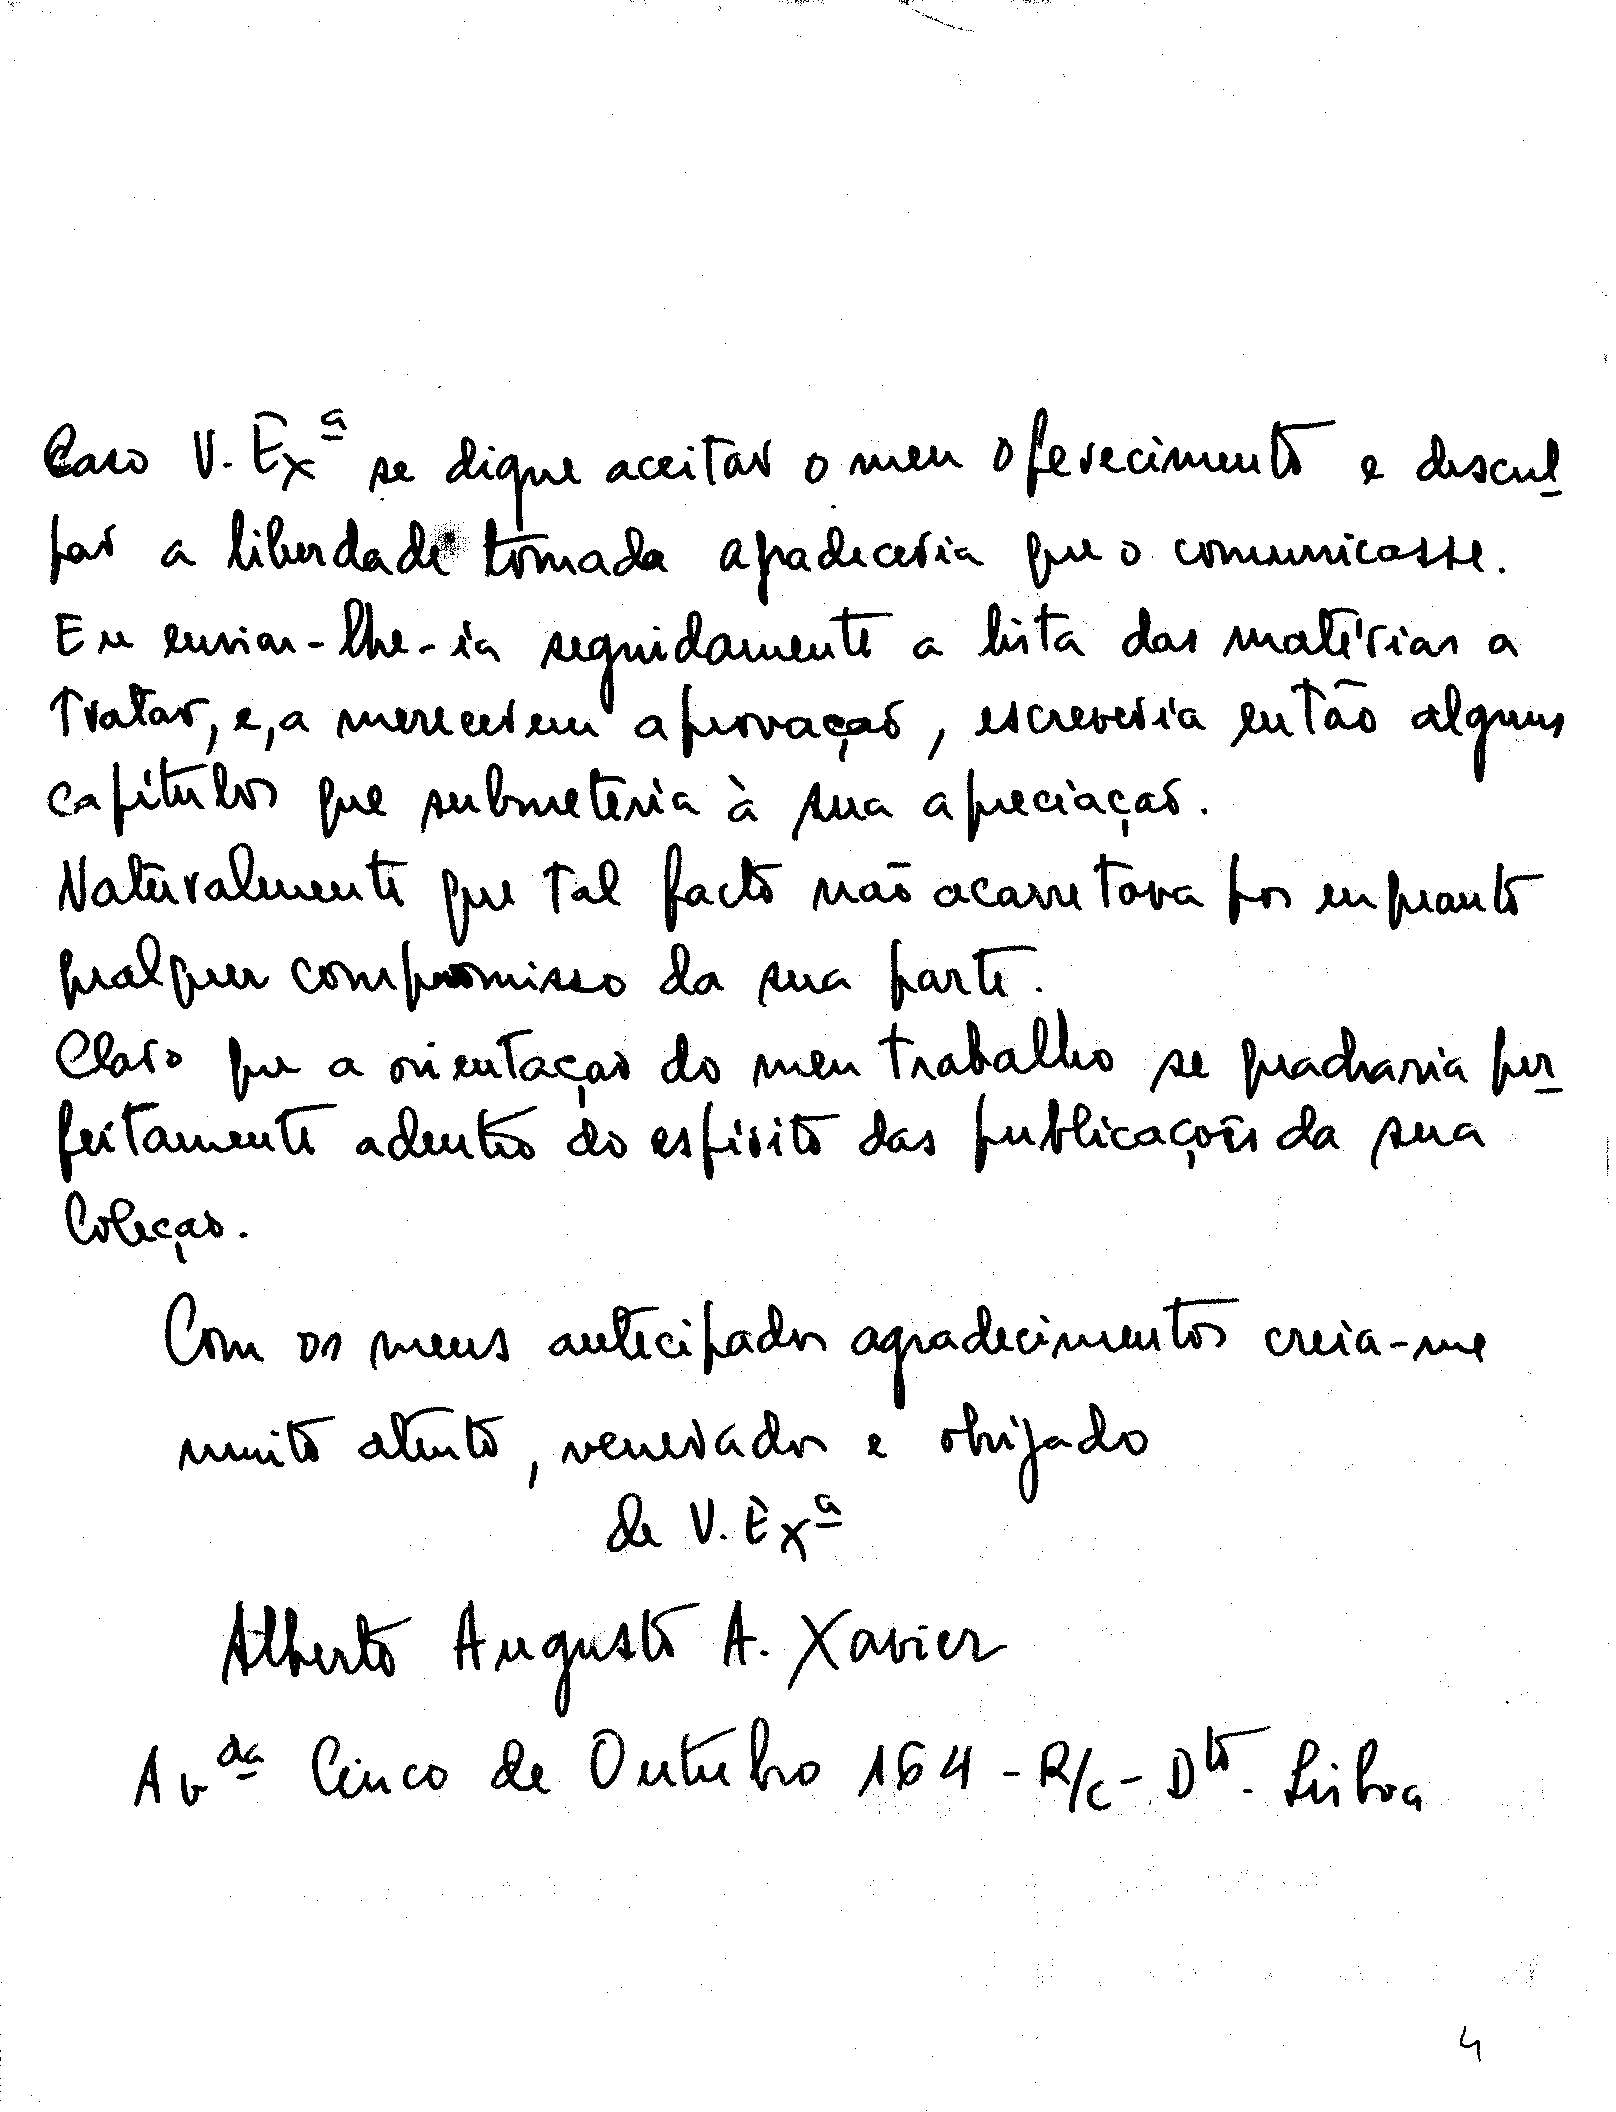 Caso V. Exª se digne aceitar o meu oferecimento e descul-
par a liberdade tomada agradeceria que o comunicasse.
Eu enviar-lhe-ia seguidamente a lista das matérias a
tratar, e, a merecerem aprovação, escreveria então alguns
capítulos que submeteria à sua apreciação.
Naturalmente que tal facto não acarretava por enquanto
qualquer compromisso da sua parte.
Claro que a orientação do meu trabalho se quadraria per-
feitamente adentro do espírito das publicações da sua
Coleção.
Com os meus antecipados agradecimentos creia-me
muito atento, venerador e obrigado
de V. Exª
Alberto Augusto A. Xavier
Avda Cinco de Outubro 164 - R/c - Dto. Lisboa
4